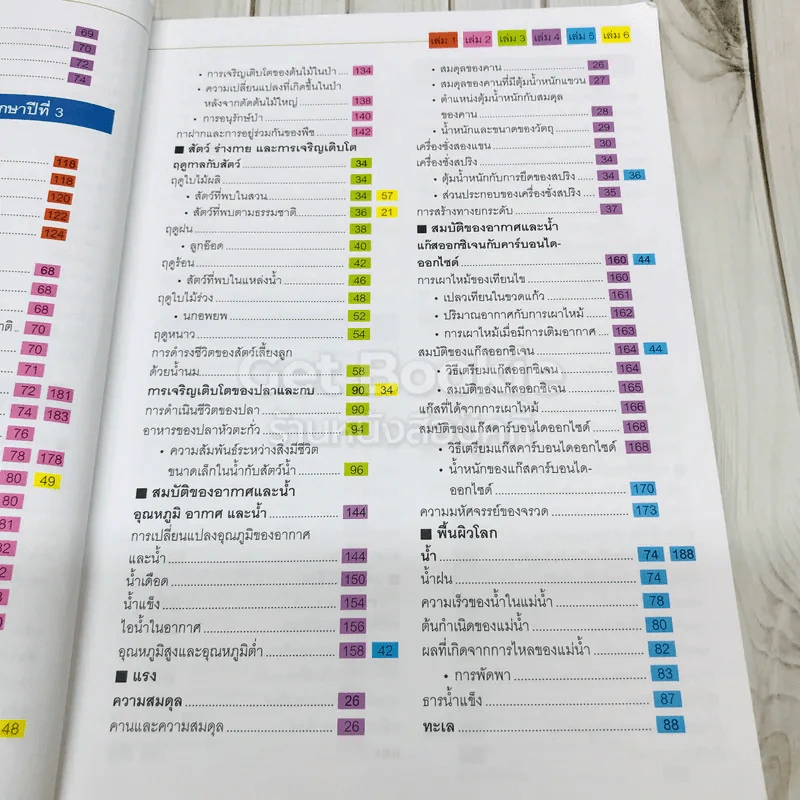 69
70
72
74
กษาปีที่ 3
118
118
120
122
124
68
68
68
ติ.. 70
70
71
72 181
74 183
76
78 178
80 49
80
81
48
เล่ม 1 เล่ม 2 เล่ม 3 เล่ม 4 เล่ม 5 เล่ม 6
• การเจริญเติบโตของต้นไม้ในป่า.... 134
• ความเปลี่ยนแปลงที่เกิดขึ้นในป่า
หลังจากตัดต้นไม้ใหญ่ 138
• การอนุรักษ์ป่า 140
กาฝากและการอยู่ร่วมกันของพืช 142
■ สัตว์ ร่างกาย และการเจริญเติบโต
ฤดูกาลกับสัตว์ 34
ฤดูใบไม้ผลิ 34
• สัตว์ที่พบในสวน 34 57
• สัตว์ที่พบตามธรรมชาติ 36 21
ฤดูฝน 38
• ลูกอ๊อด 40
ฤดูร้อน 42
• สัตว์ที่พบในแหล่งน้ำ 46
ฤดูใบไม้ร่วง 48
• นกอพยพ 52
ฤดูหนาว 54
การดำรงชีวิตของสัตว์เลี้ยงลูก
ด้วยน้ำนม 58
การเจริญเติบโตของปลาและกบ 90 34
การดำเนินชีวิตของปลา 90
อาหารของปลาหัวตะกั่ว 94
• ความสัมพันธ์ระหว่างสิ่งมีชีวิต
ขนาดเล็กในน้ำกับสัตว์น้ำ 96
■ สมบัติของอากาศและน้ำ
อุณหภูมิ อากาศ และน้ำ 144
การเปลี่ยนแปลงอุณภูมิของอากาศ
และน้ำ 144
น้ำเดือด 150
น้ำแข็ง 154
ไอน้ำในอากาศ 156
อุณหภูมิสูงและอุณหภูมิต่ำ 158 42
■ แรง
ความสมดุล 26
คานและความสมดุล 26
• สมดุลของคาน 26
• สมดุลของคานที่มีตุ้มน้ำหนักแขวน 27
• ตำแหน่งตุ้มน้ำหนักกับสมดุล
ของคาน 28
• น้ำหนักและขนาดของวัตถุ 29
เครื่องชั่งสองแขน 30
เครื่องชั่งสปริง 34
• ตุ้มน้ำหนักกับการยืดของสปริง 34 36
• ส่วนประกอบของเครื่องชั่งสปริง 35
การสร้างทางยกระดับ 37
■ สมบัติของอากาศและน้ำ
แก๊สออกซิเจนกับคาร์บอนได-
ออกไซด์ 160 44
การเผาไหม้ของเทียนไข 160
• เปลวเทียนในขวดแก้ว 161
• ปริมาณอากาศกับการเผาไหม้ 162
• การเผาไหม้เมื่อมีการเติมอากาศ 163
สมบัติของแก๊สออกซิเจน 164 44
• วิธีเตรียมแก๊สออกซิเจน 164
• สมบัติของแก๊สออกซิเจน 165
แก๊สที่ได้จากการเผาไหม้ 166
สมบัติของแก๊สคาร์บอนไดออกไซด์ 168
• วิธีเตรียมแก๊สคาร์บอนไดออกไซด์ 168
• น้ำหนักของแก๊สคาร์บอนได-
ออกไซด์ 170
ความมหัศจรรย์ของจรวด 173
■ พื้นผิวโลก
น้ำ 74 188
น้ำฝน 74
ความเร็วของน้ำในแม่น้ำ 78
ต้นกำเนิดของแม่น้ำ 80
ผลที่เกิดจากการไหลของแม่น้ำ 82
• การพัดพา 83
ธารน้ำแข็ง 87
ทะเล 88